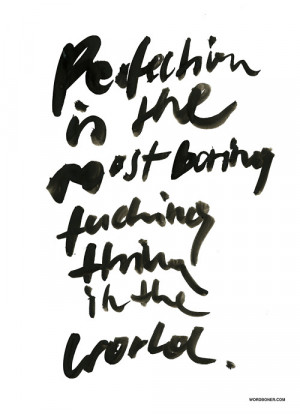 Perfection
is the
most boring
fucking
thing
in the
world.
WORDBONER.COM